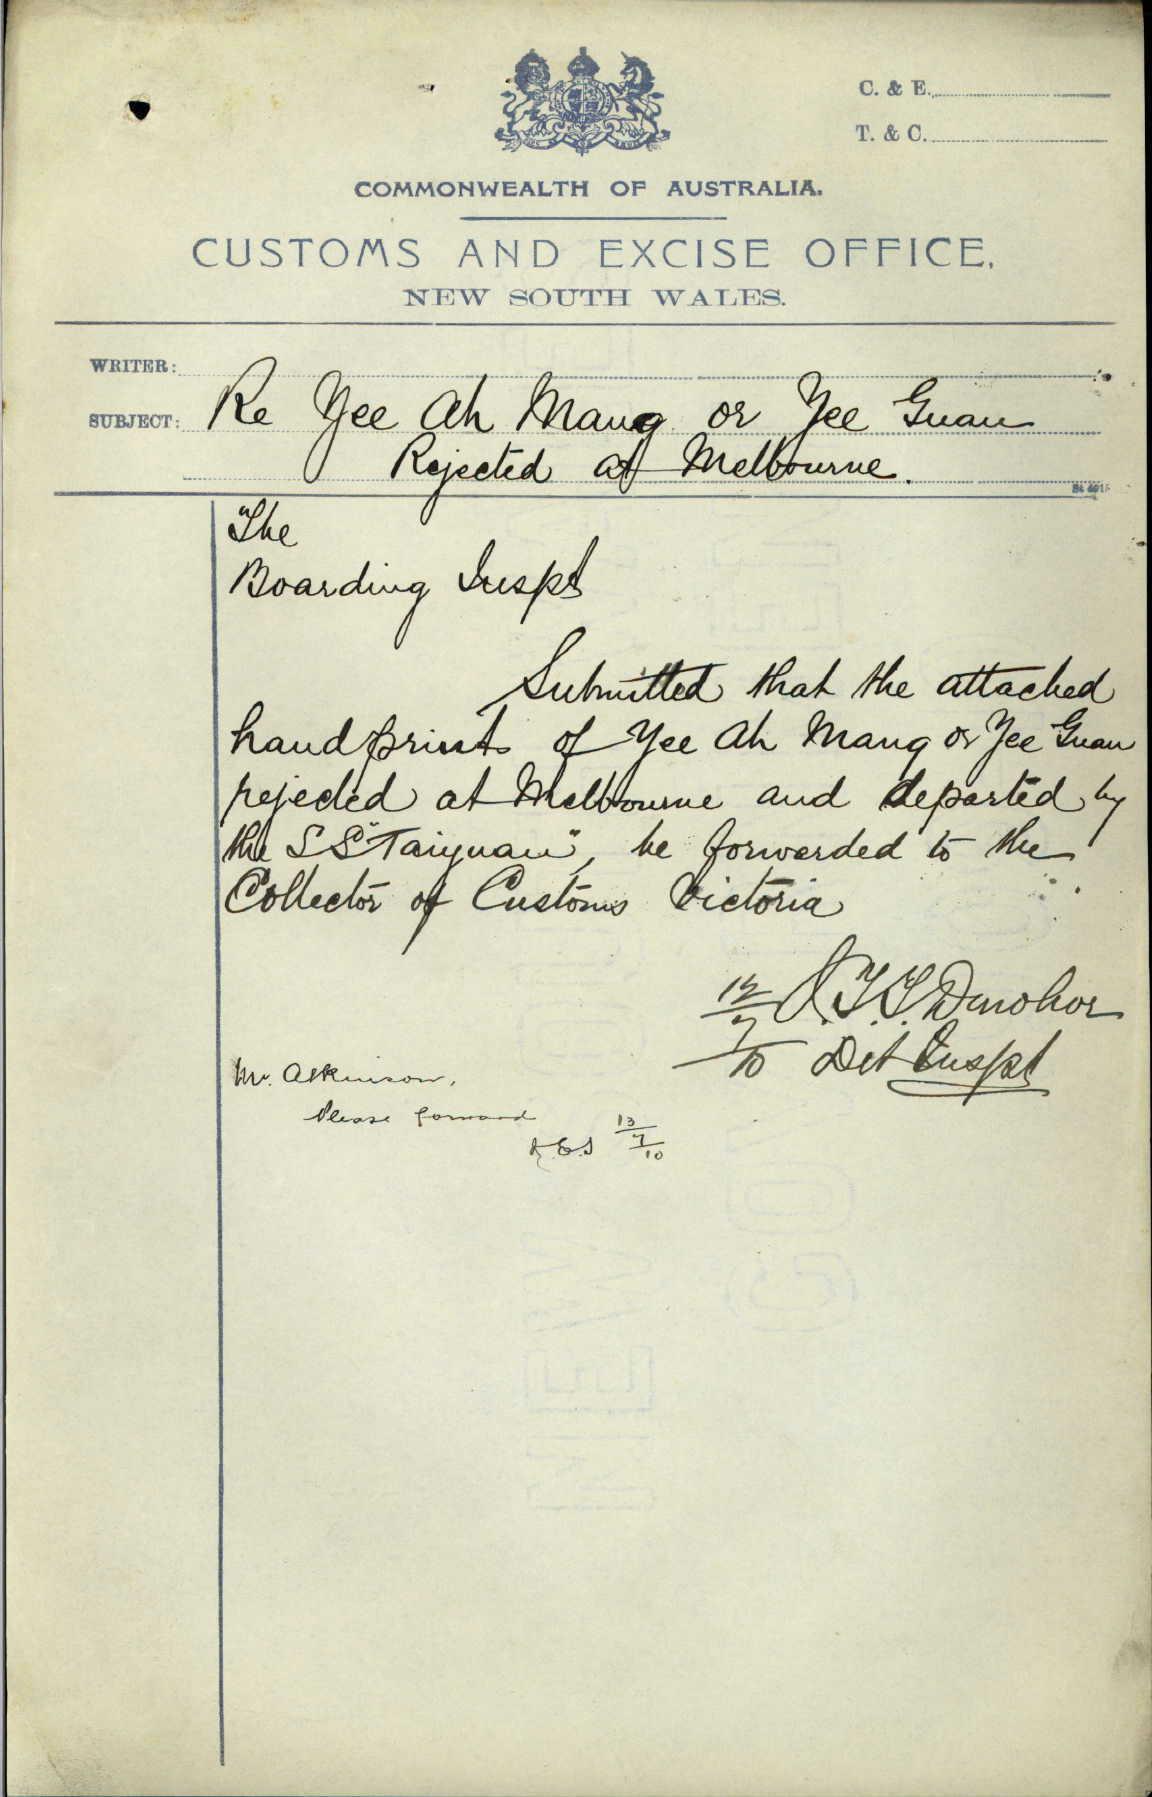 C. & E.
T. & C.
COMMONWEALTH OF AUSTRALIA.
CUSTOMS AND EXCISE OFFICE,
NEW SOUTH WALES.
WRITER:
SUBJECT: Re Yee Ah Mang or Yee Guan
Rejected at Melbourne.
The
Boarding Inspt
Submitted that the attached
handprints of Yee Ah Mang or Yee Guan
rejected at Melbourne and departed by
the SS "Taiyuan", be forwarded to the
Collector of Customs Victoria
12/7/10 J.T.T. Donohoe
Det Inspt
Mr. Atkinson,
Please forward
13/7/10